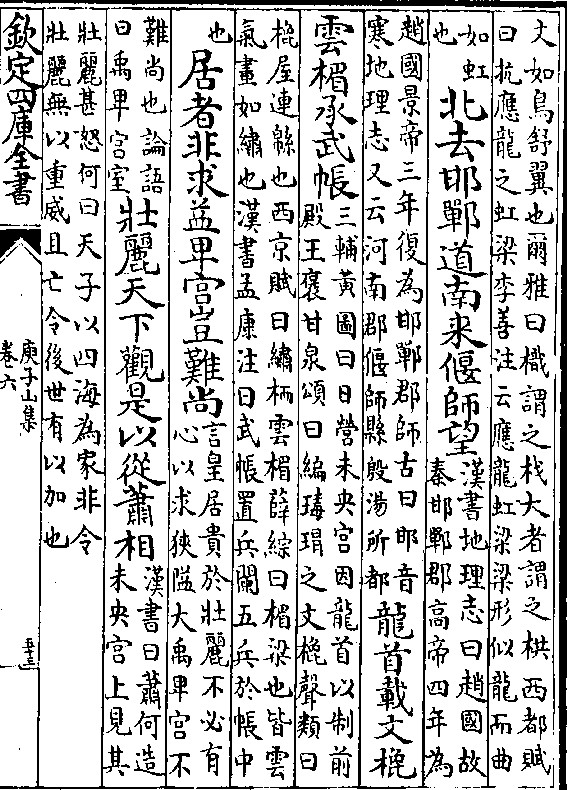 文如鳥舒翼也爾雅曰樴謂之杙大者謂之栱西都賦
曰抗應龍之虹梁李善注云應龍虹梁梁形似龍而曲
如虹
也
北去邯鄲道南来偃師望
漢書地理志曰趙國故
秦邯鄲郡高帝四年為
趙國景帝三年復為邯鄲郡師古曰邯音
寒地理志又云河南郡偃師縣殷湯所都
龍首載文棁
雲楣承武帳
三輔黃圖曰日營未央宮因龍首以制前
殿王襃甘泉頌曰編瑇瑁之文棁聲類曰
棁屋連緜也西京賦曰繡栭雲楣薛綜曰楣梁也皆雲
氣畫如繡也漢書孟康注曰武帳置兵闌五兵於帳中
也
居者非求益卑宮豈難尚
言皇居貴於壯麗不必有
心以求狹隘大禹卑宮不
難尚也論語
曰禹卑宮室
壯麗天下觀是以從蕭相
漢書曰蕭何造
未央宮上見其
壯麗甚怒何曰天子以四海為家非令
壯麗無以重威且亡令後世有以加也
欽定四庫全書
庾子山集
卷六